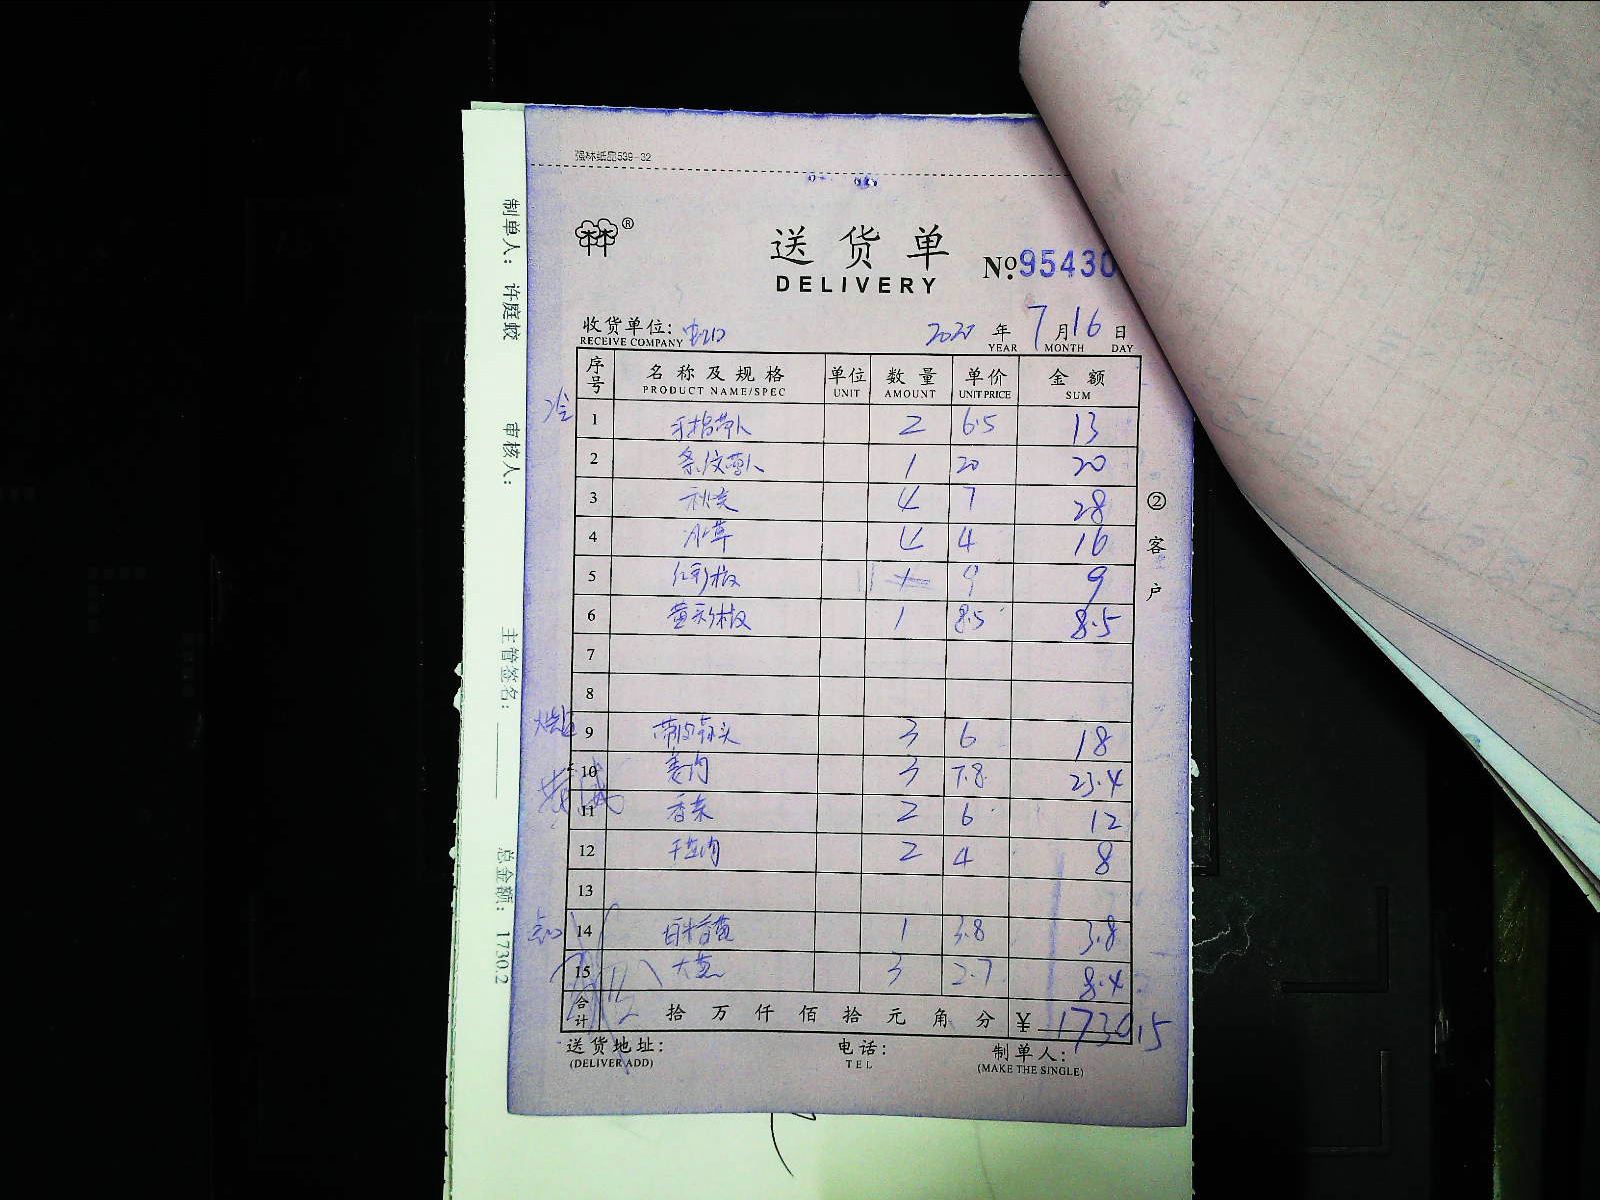 强林纸品539-32
送货单
DELIVERY
No.95430
收货单位: 虹口 2020年7月16日
RECEIVE COMPANY YEAR MONTH DAY
序号 名称及规格 单位 数量 单价 金额
PRODUCT NAME/SPEC UNIT AMOUNT UNIT PRICE SUM
1 2 6.5 13
2 1 20 20
3 秋葵 4 7 28
4 冰草 4 4 16
5 红彩椒 1 9 9
6 黄彩椒 1 8.5 8.5
7
8
9 带皮蒜头 3 6 18
10 姜肉 3 7.8 23.4
11 香菜 2 6 12
12 2 4 8
13
14 1 3.8 3.8
15 大葱 3 2.7 8.4
合计 拾万仟佰拾元角分 ¥ 1730.15
送货地址: 电话: 制单人:
(DELIVER ADD) TEL (MAKE THE SINGLE)
②客户
制单人: 许庭蛟 审核人: 主管签名: 总金额: 1730.2